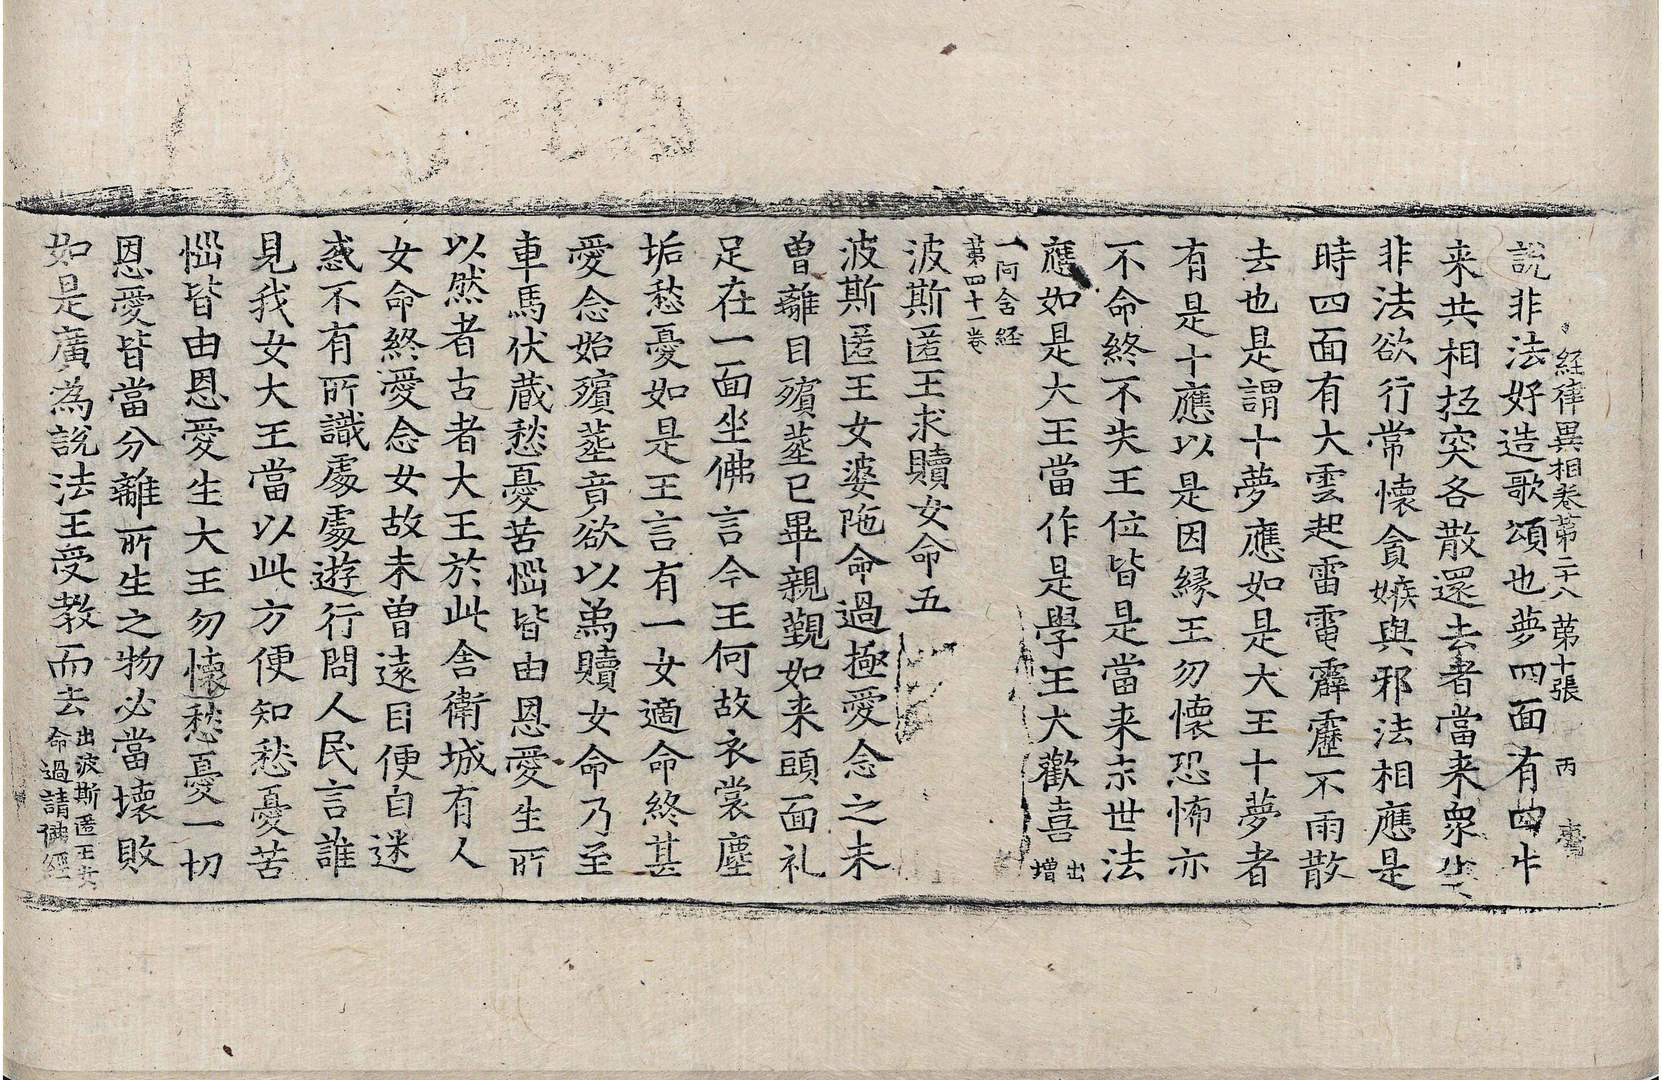 経律異相巻第二十八 第十張 丙
說非法好造歌頌也夢四面有四牛
来共相抵突各散還去者當来衆生
非法欲行常懷貪嫉與邪法相應是
時四面有大雲起雷電霹靂不雨散
去也是謂十夢應如是大王十夢者
有是十應以是因縁王勿懷恐怖亦
不命終不失王位皆是當来末世法
應如是大王當作是學王大歡喜出增
一阿含経
第四十一巻
波斯匿王求贖女命五
波斯匿王女婆陁命過極愛念之未
曽離目殯葬已畢親覲如来頭面礼
足在一面坐佛言今王何故衣裳塵
垢愁憂如是王言有一女適命終甚
愛念始殯葬音欲以爲贖女命乃至
車馬伏蔵愁憂苦惱皆由恩愛生所
以然者古者大王於此舍衛城有人
女命終愛念女故未曽遠目便自迷
惑不有所識處處遊行問人民言誰
見我女大王當以此方便知愁憂苦
惱皆由恩愛生大王勿懷愁憂一切
恩愛皆當分離所生之物必當壞敗
如是廣為說法王受教而去出波斯匿王女
命過請佛經